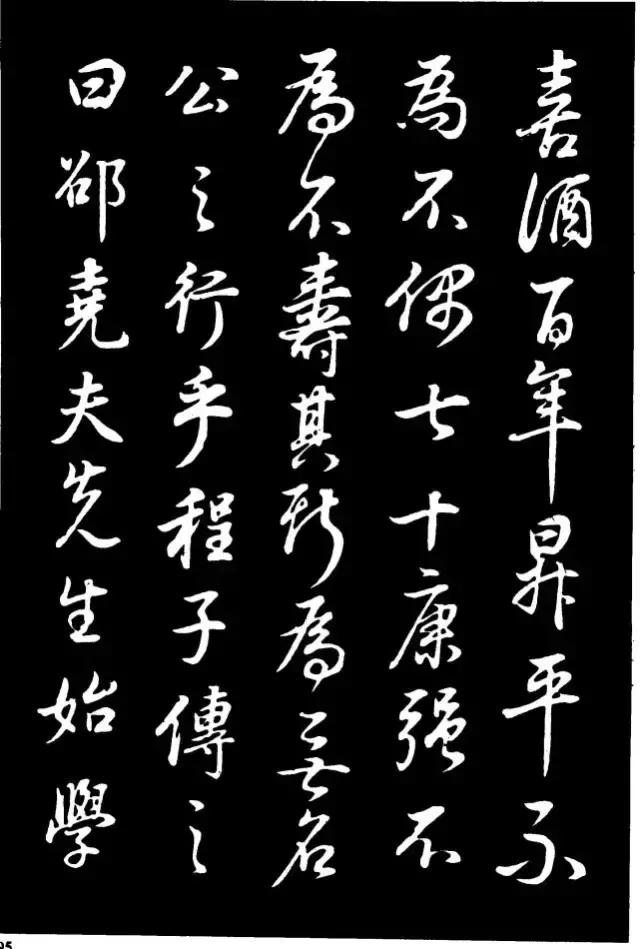 喜酒百年昇平不
為不偶七十康强不
為不壽其斯為無名
公之行乎程子傳之
曰邵堯夫先生始學
95